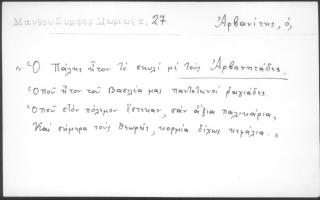 Μάνθου Συμφορ. Μωρέως σ. 27
Ἀρβανίτης, ὁ,
„ Ὁ Πάλης ἦτον τὸ σκυλὶ μὲ τοὺς Ἀρβανητάδες.
Ὁποῦ ἦτον τοῦ Βασιλέα μας παντοτινοὶ ραγιάδες.
Ὁποῦ στὸν πόλεμον ἔστεκαν, σὰν ἄξια παλικάρια,
Καὶ σήμερα τοὺς θεωρεῖς, κορμιὰ δίχως κεφάλια. „